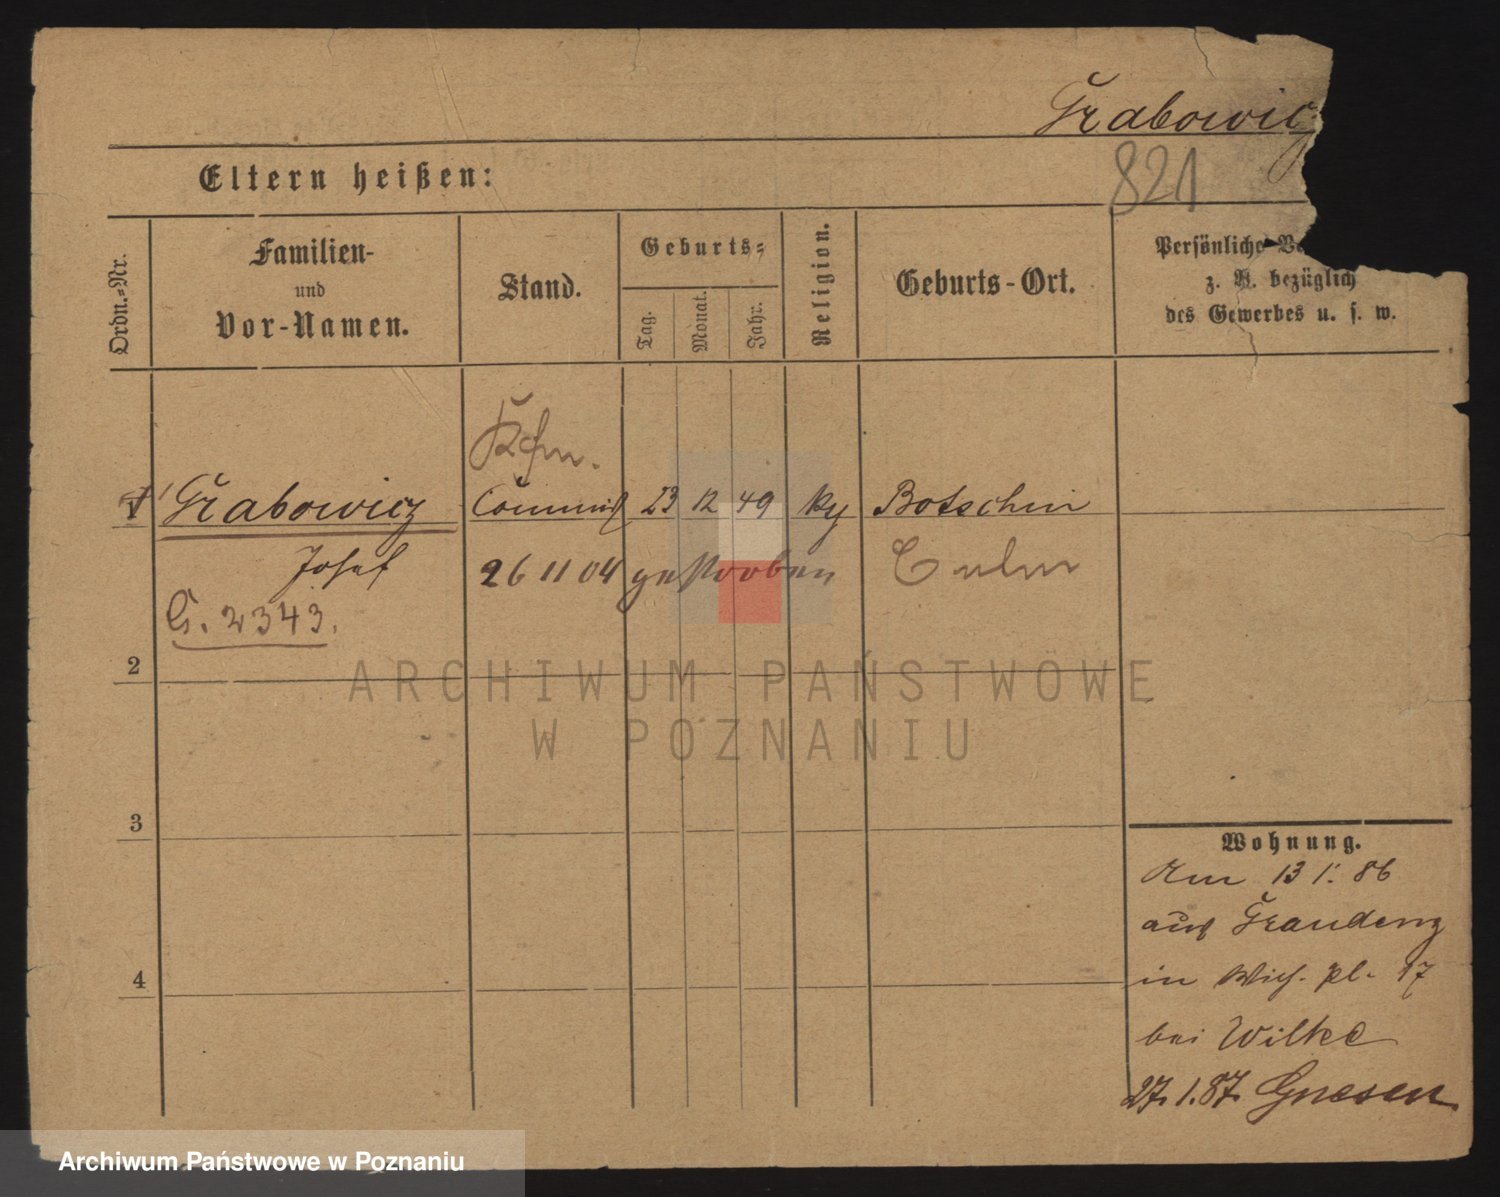 Grabowicz
821
Eltern heißen:
Ordn.-Nr.
Familien-
und
Vor-Namen.
Stand.
Geburts-
Tag.
Monat.
Jahr.
Religion.
Geburts-Ort.
Persönliche Be
z. B. bezüglich
des Gewerbes u. s. w.
Kfm.
1 Grabowicz Commis 23 12 49 Botschin
Josef 26 11 04 gestorben Culm
G. 2343.
2
3
4
Wohnung.
Am 13 1. 86
aus Graudenz
in pl. 17
bei Wilke
27. 1. 87. Gnesen
ARCHIWUM PAŃSTWOWE
W POZNANIU
Archiwum Państwowe w Poznaniu